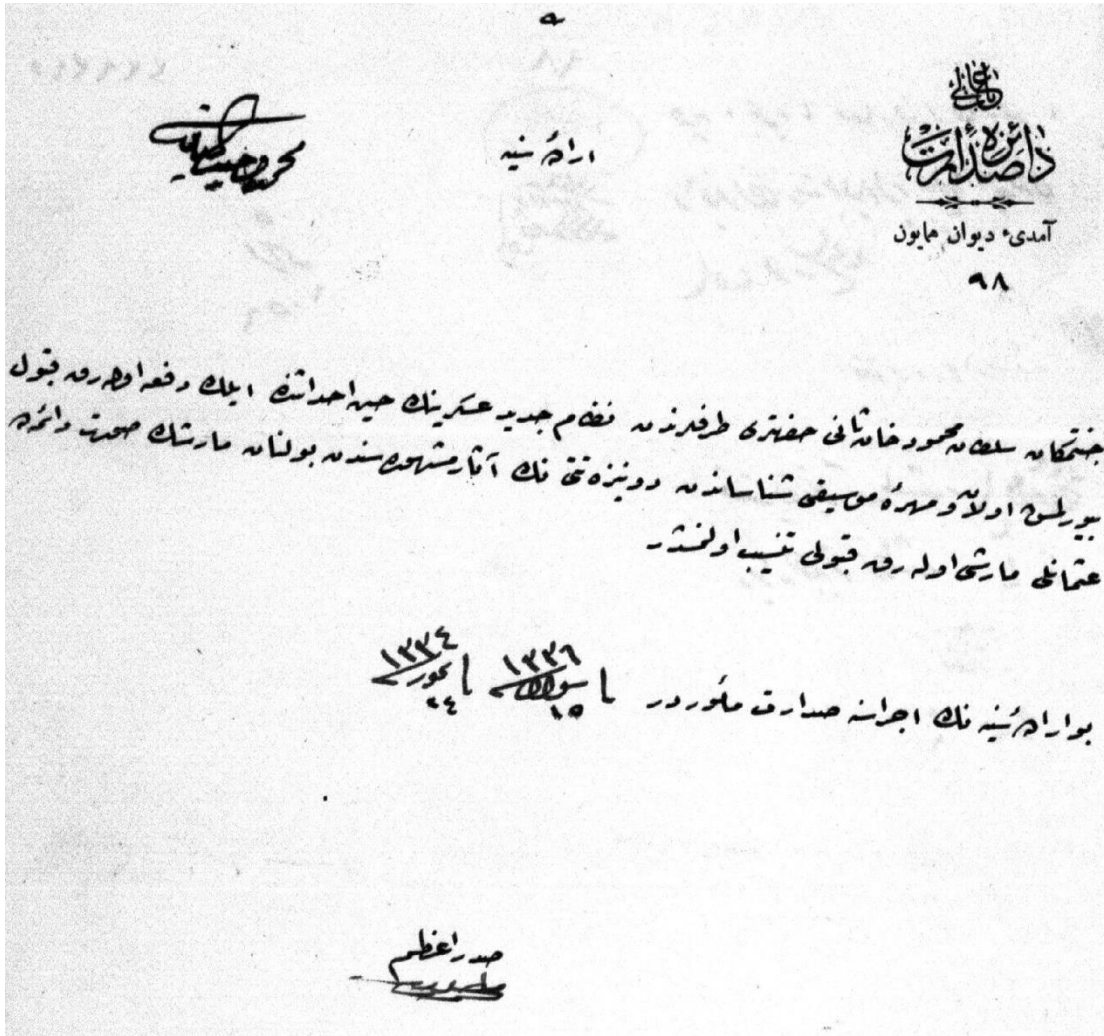 باب عالی
دائرهٔ صدارت
آمدیء دیوان همایون
٩٨
ارادهٔ سنیه
محمد وحیدالدین
جنتمكان سلطان محمود خان ثانی حضرتلری طرفلرندن نظام جدید عسکرینك حین احداثنده ایلك دفعه اوله رق قبول
بیورلمش اولان و مهرهٔ موسیقی شناساندن دونیزه تتی نك آثار مشهوره سندن بولنان مارشك صحت دائره
عثمانلی مارشی اوله رق قبولی تنسیب اولنمشدر
بو ارادهٔ سنیه نك اجراسنه صدارت مأموردر
١٥ شوال ١٣٣٦
٢٤ تموز ١٣٣٤
صدر اعظم